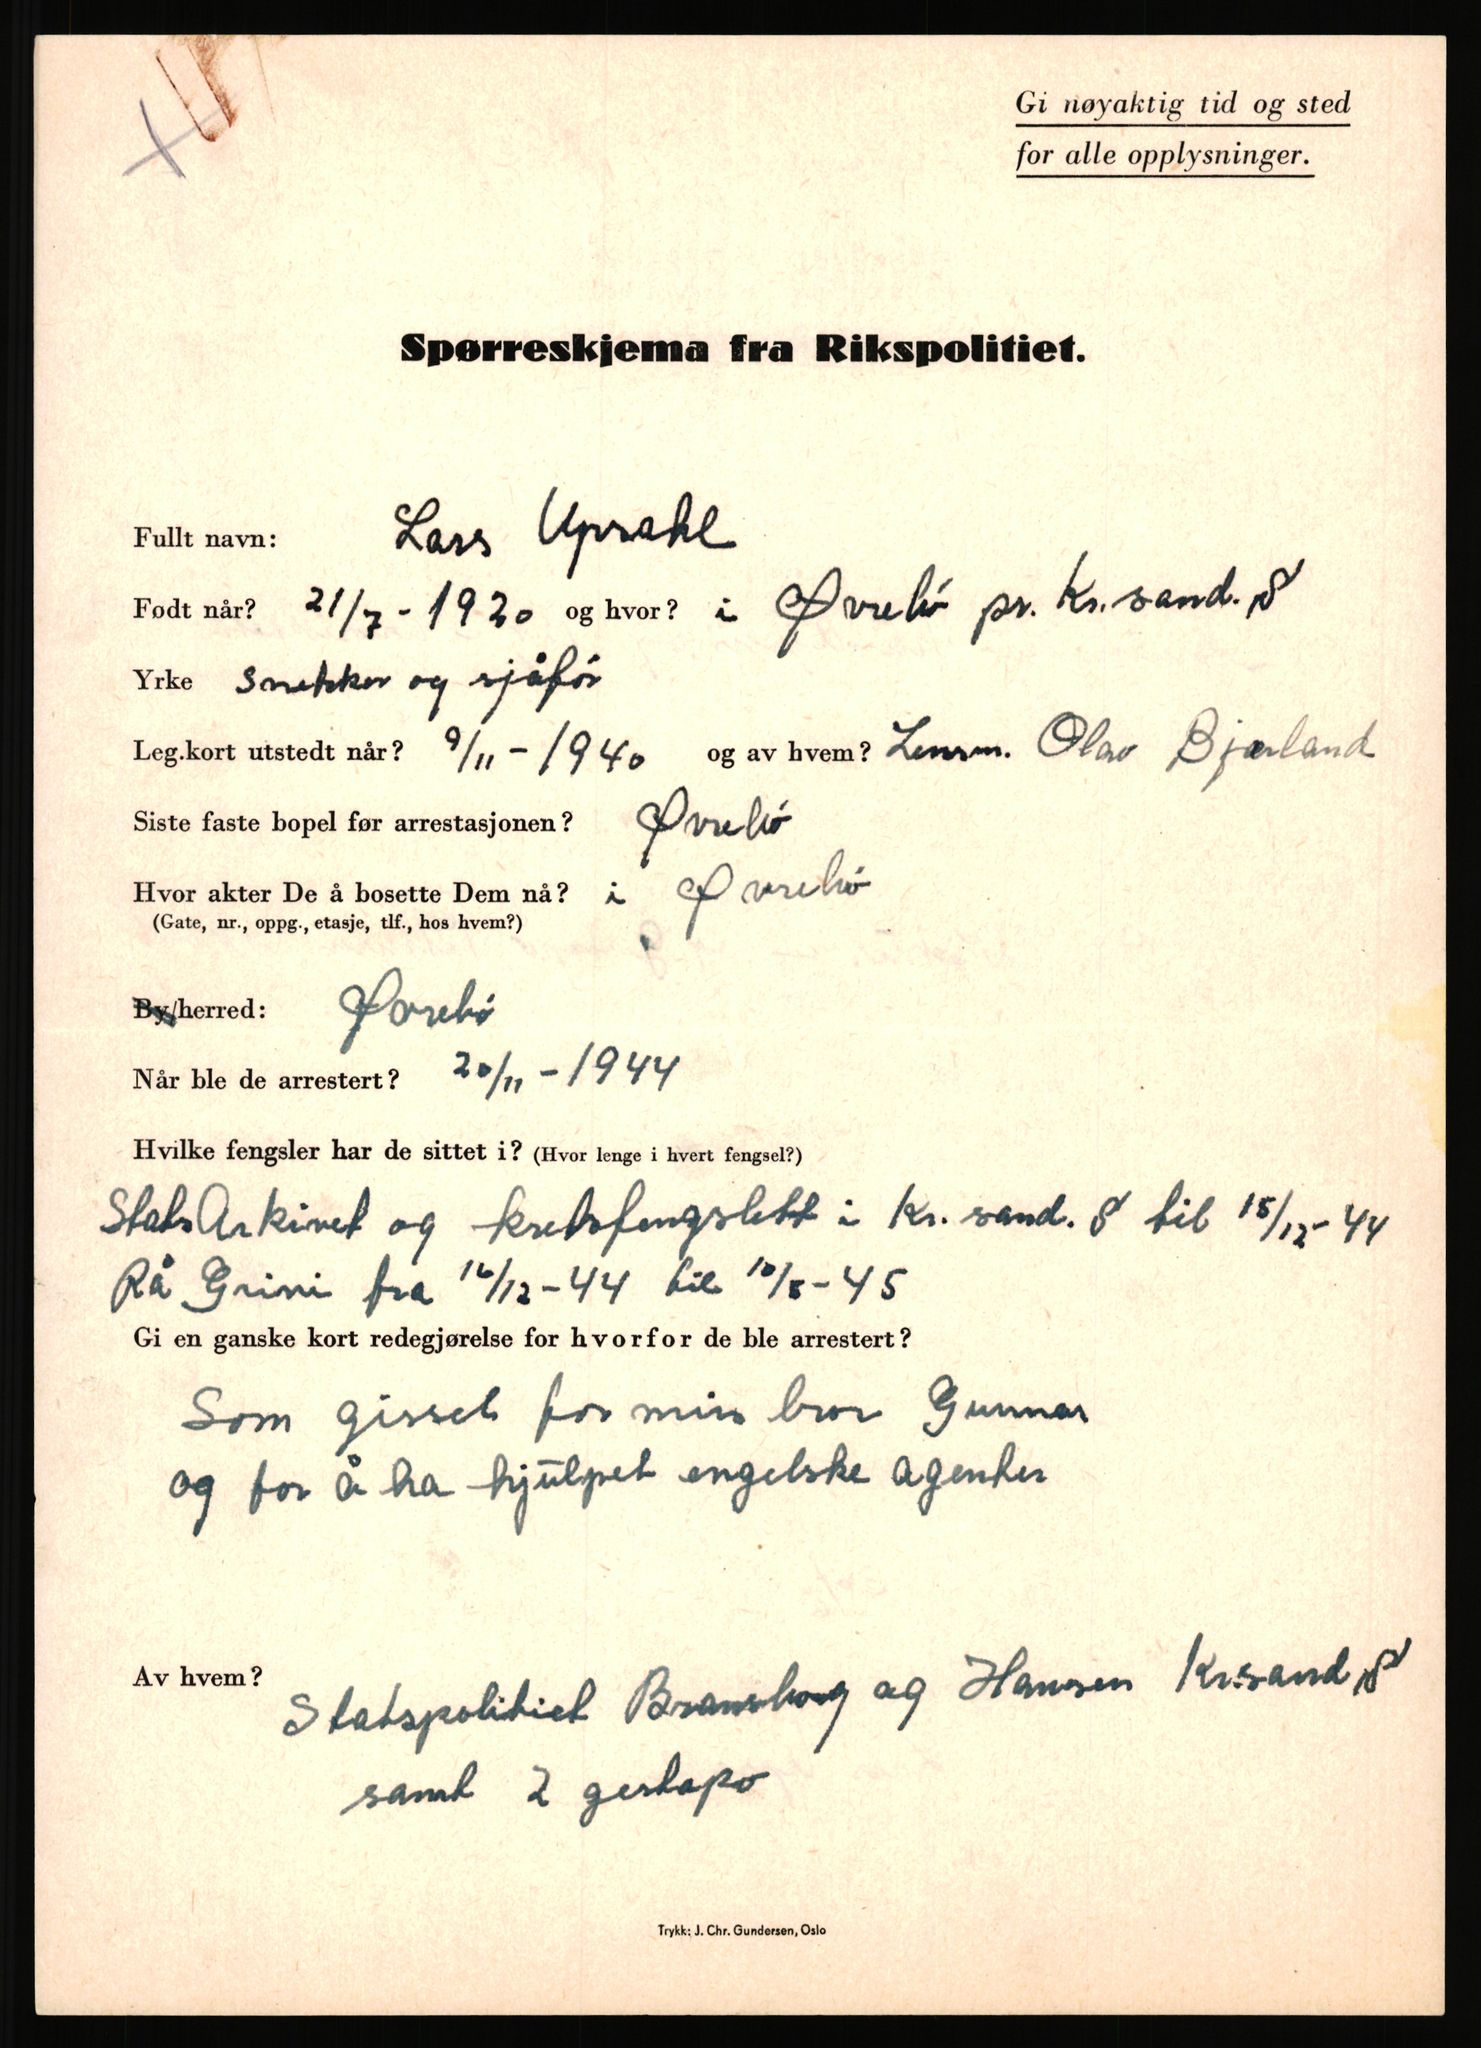 Gi nøyaktig tid og sted
for alle opplysninger.
Spørreskjema fra Rikspolitiet.
Fullt navn: Lars Upsahl
Født når? 21/7 - 1920 og hvor? i Øvrebö pr. Kr.sand. S
Yrke Snekker og sjåför
Leg.kort utstedt når? 9/11 - 1940 og av hvem? Lensm. Olav Bjærland
Siste faste bopel før arrestasjonen? Øvrebö
Hvor akter De å bosette Dem nå? i Øvrebö
(Gate, nr., oppg., etasje, tlf., hos hvem?)
By/herred: Øvrebö
Når ble de arrestert? 20/11 - 1944
Hvilke fengsler har de sittet i? (Hvor lenge i hvert fengsel?)
StatsArkivet og kretsfengslett i Kr.sand. S til 15/12-44
På Grini fra 16/12-44 til 10/5-45
Gi en ganske kort redegjørelse for hvorfor de ble arrestert?
Som gissel for min bror Gunnar
og for å ha hjulpet engelske agenter
Av hvem?
Statspolitiet og Hansen Kr.sand S
samt 2 gestapo
Trykk: J. Chr. Gundersen, Oslo